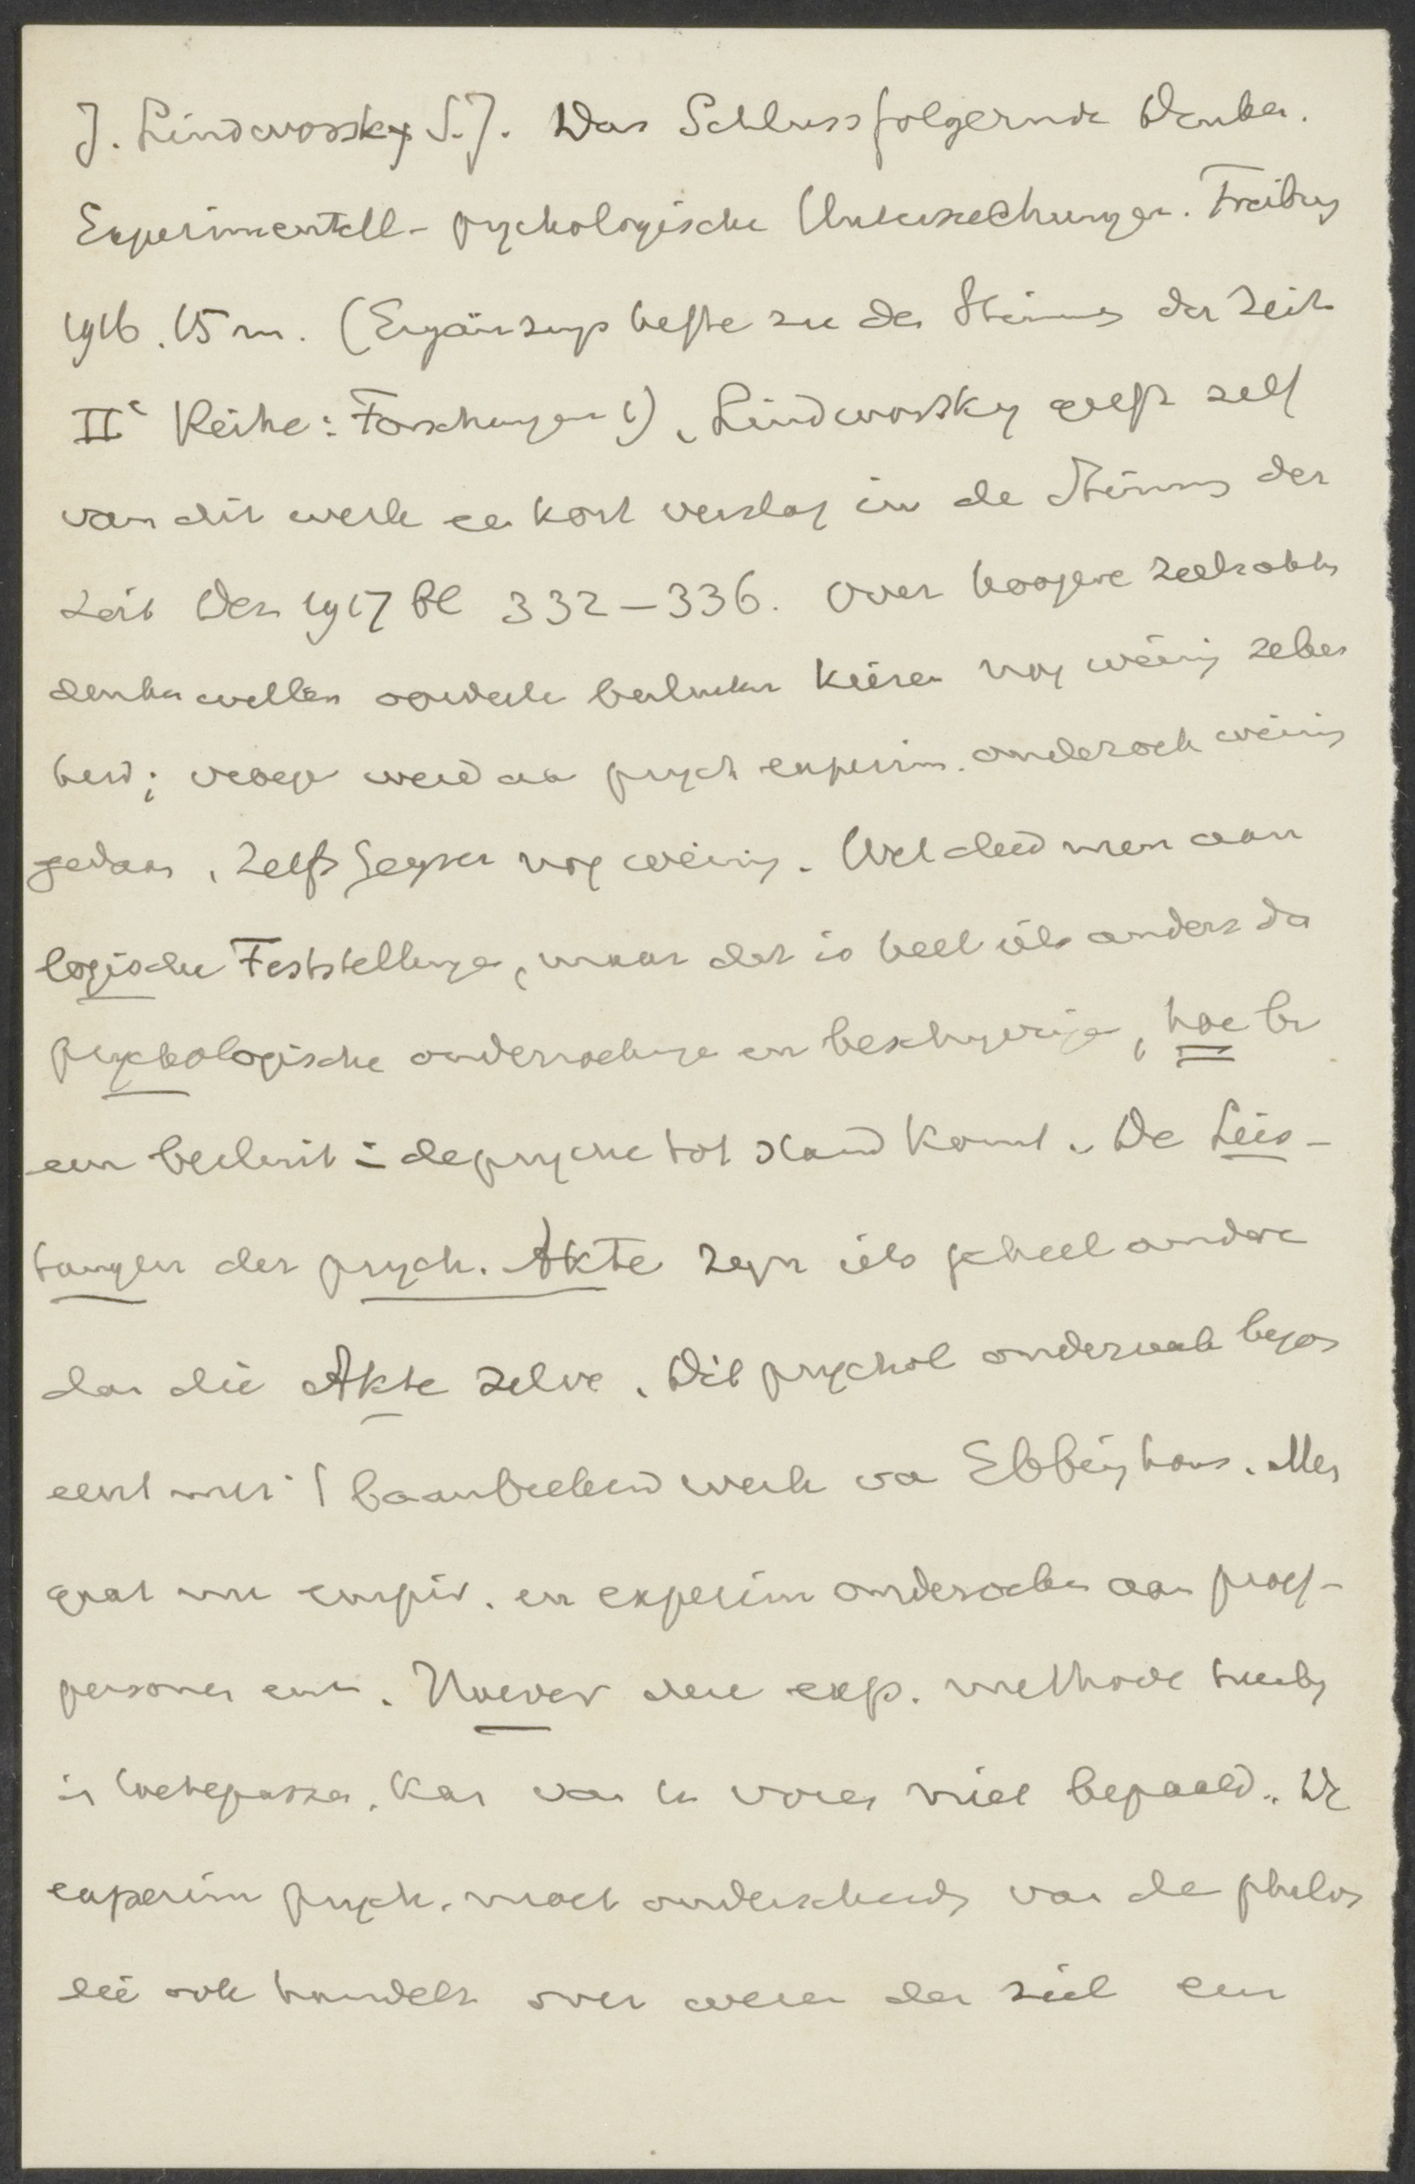 J. Lindworsky S.J. Das Schlussfolgernde Denken.
Experimentell-psychologische Untersuchungen. Freiburg
1916. 15 m. (Ergänzungshefte zu den Stimmen der Zeit
IIe Reihe: Forschungen 1). Lindworsky geeft zelf
van dit werk een kort verslag in de Stimmen der
Zeit Dez 1917 bl 332-336. Over hoogere zielsakten
denken willen oordeelen besluiten kiezen nog weinig zeker
bekend; vroeger werd aan psych experim. onderzoek weinig
gedaan, zelfs Geyser nog weinig. Wel deed men aan
logische Feststellungen, maar dat is heel iets anders dan
psychologische onderzoekingen en beschrijvingen, hoe bv
een besluit in de psyche tot stand komt. De Leis-
tungen der psych. Akte zijn iets geheel anders
dan die Akte zelve. Dit psychol onderzoek begon
eerst met 't baanbrekend werk van Ebbinghaus. Men
gaat nu empir. en experim onderzoeken aan proef-
personen enz. Hoever deze exp. methode
is toetepassen, kan van te voren niet bepaald. De
experim psych. moet onderscheiden van de philos
die ook handelt over wezen der ziel enz